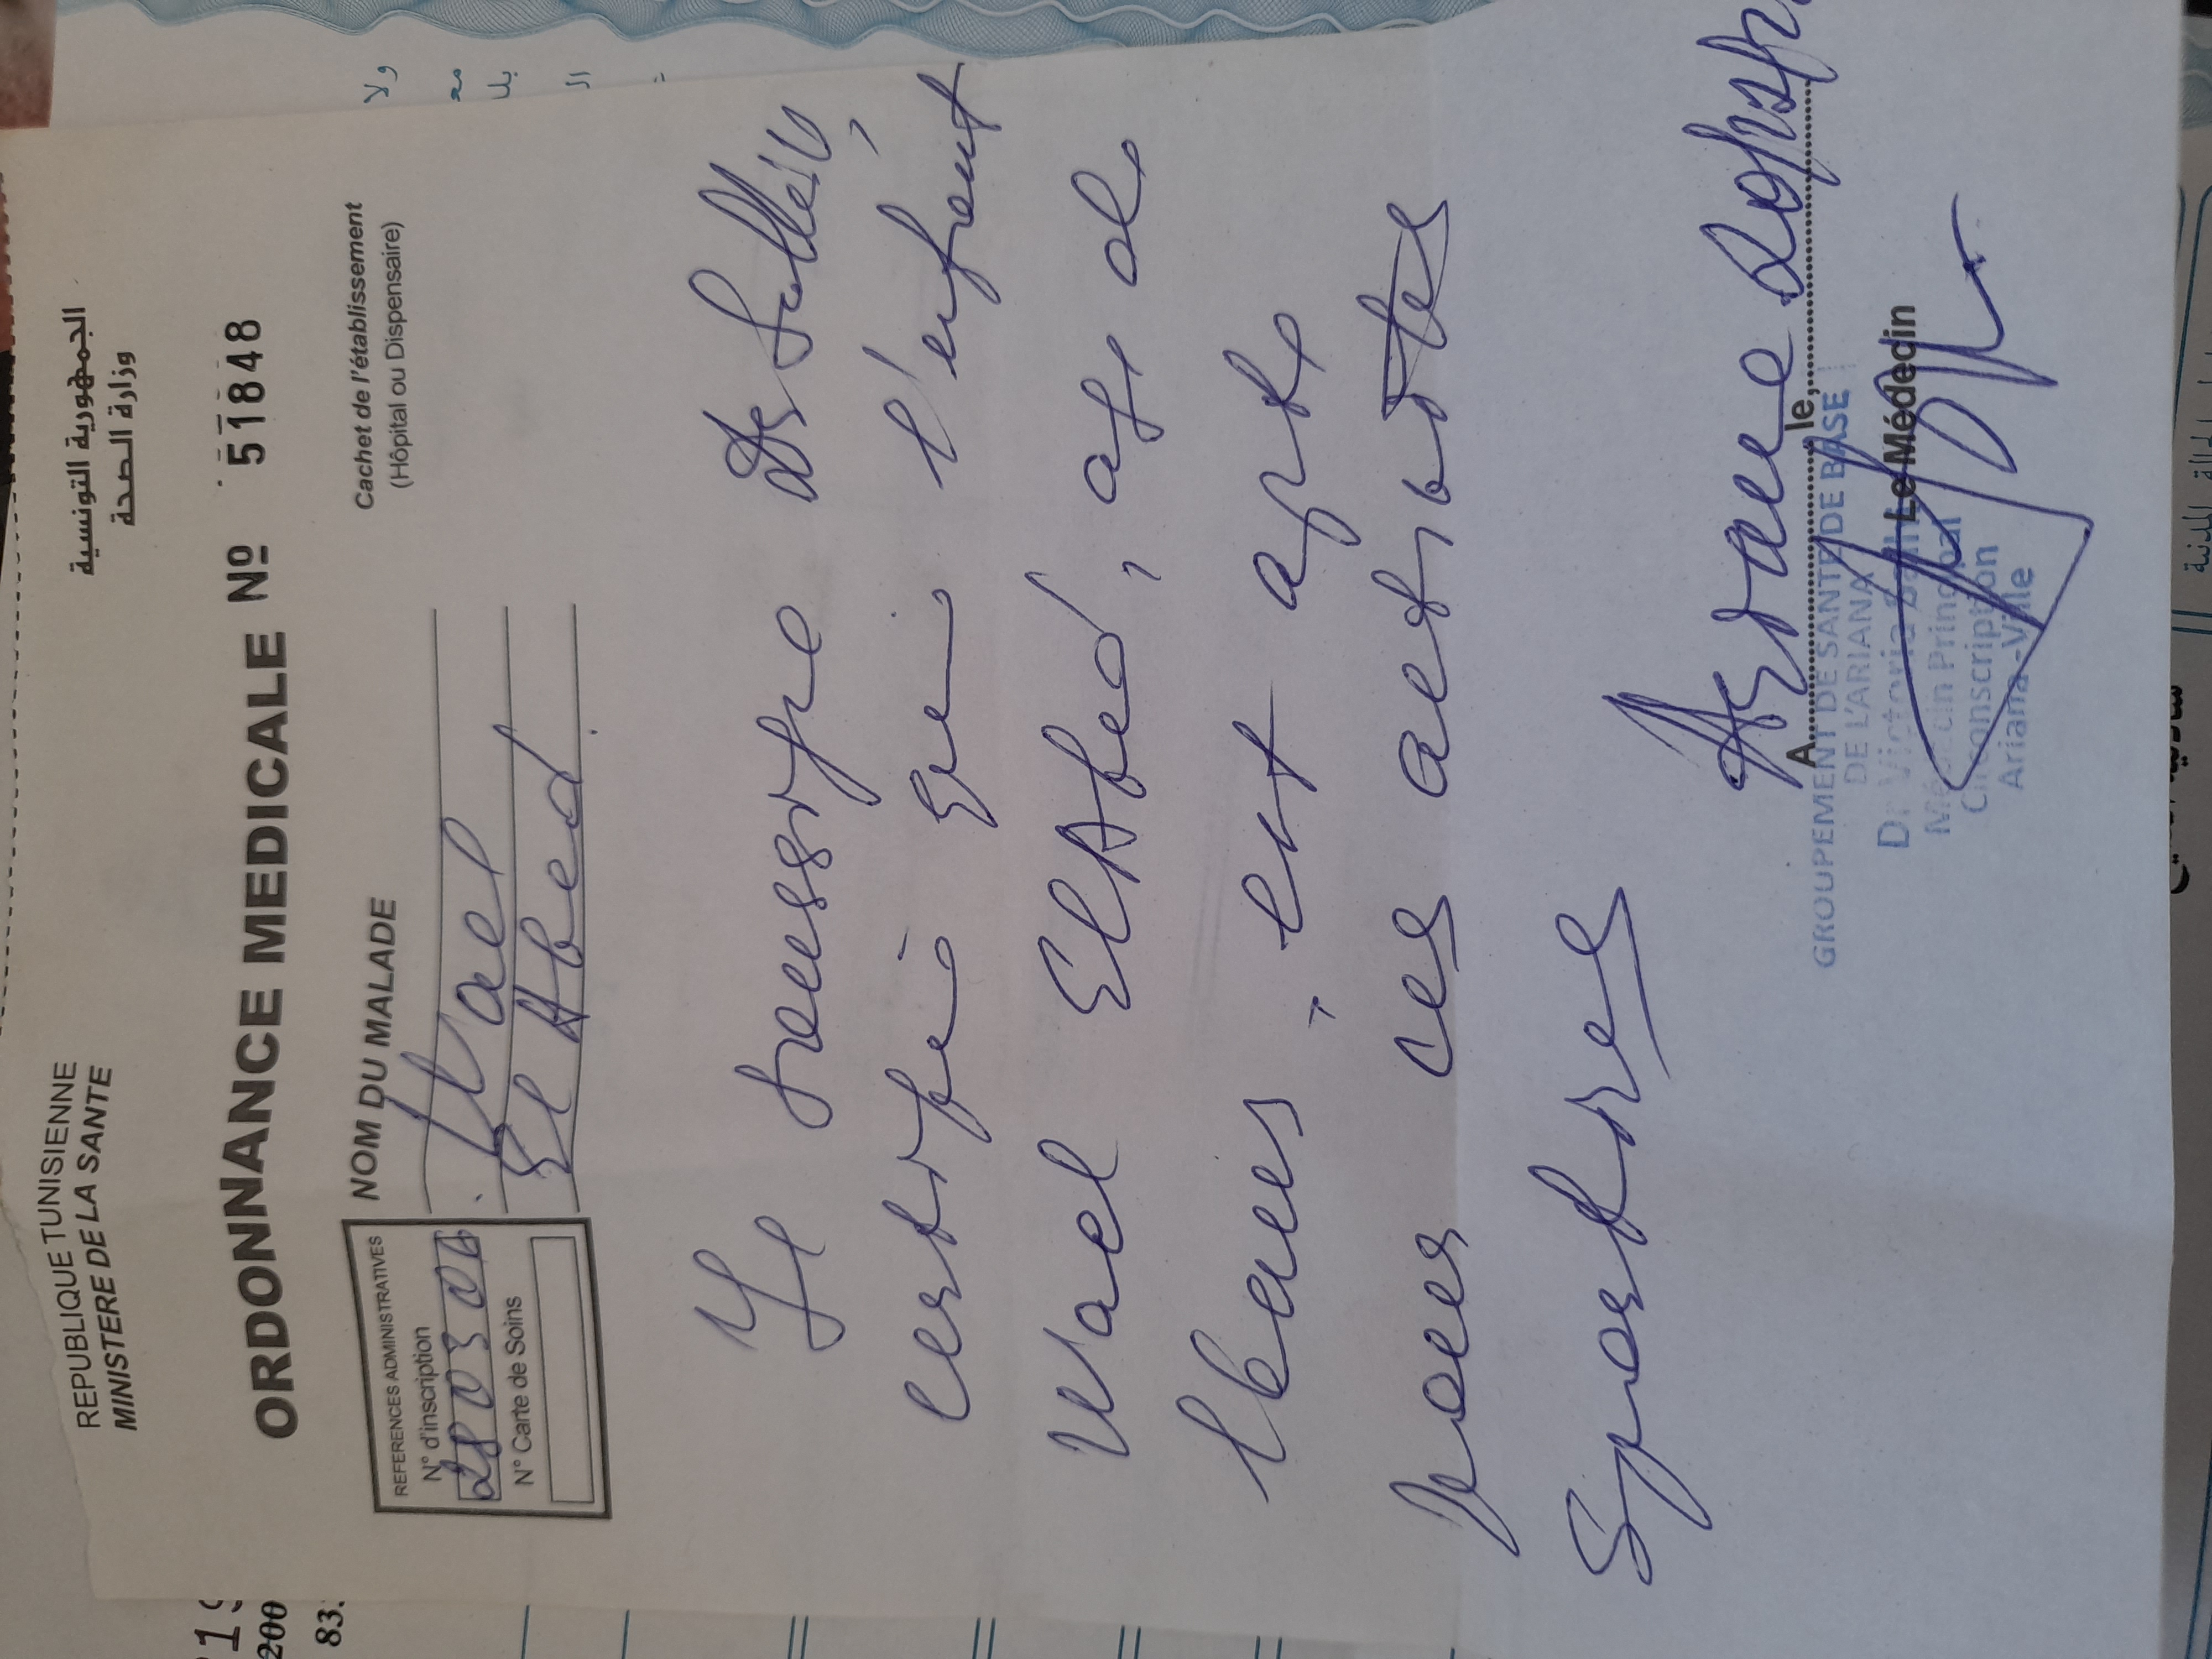 REPUBLIQUE TUNISIENNE
MINISTERE DE LA SANTE
الجمهورية التونسية
وزارة الصحة
ORDONNANCE MEDICALE Nº 51848
REFERENCES ADMINISTRATIVES
N° d'inscription
N° Carte de Soins
NOM DU MALADE
Wael
El Abed
Cachet de l'établissement
(Hôpital ou Dispensaire)
Je soussigné Dr
certifie que l'enfant
Wael El Abed, age de
ans, est apte
pour les activités
Sportives
Ariana
A le,
Le Médecin
GROUPEMENT DE SANTE DE BASE
DE L'ARIANA
Dr Victoria
Médecin Principal
Circonscription
Ariana-Ville
200
83.